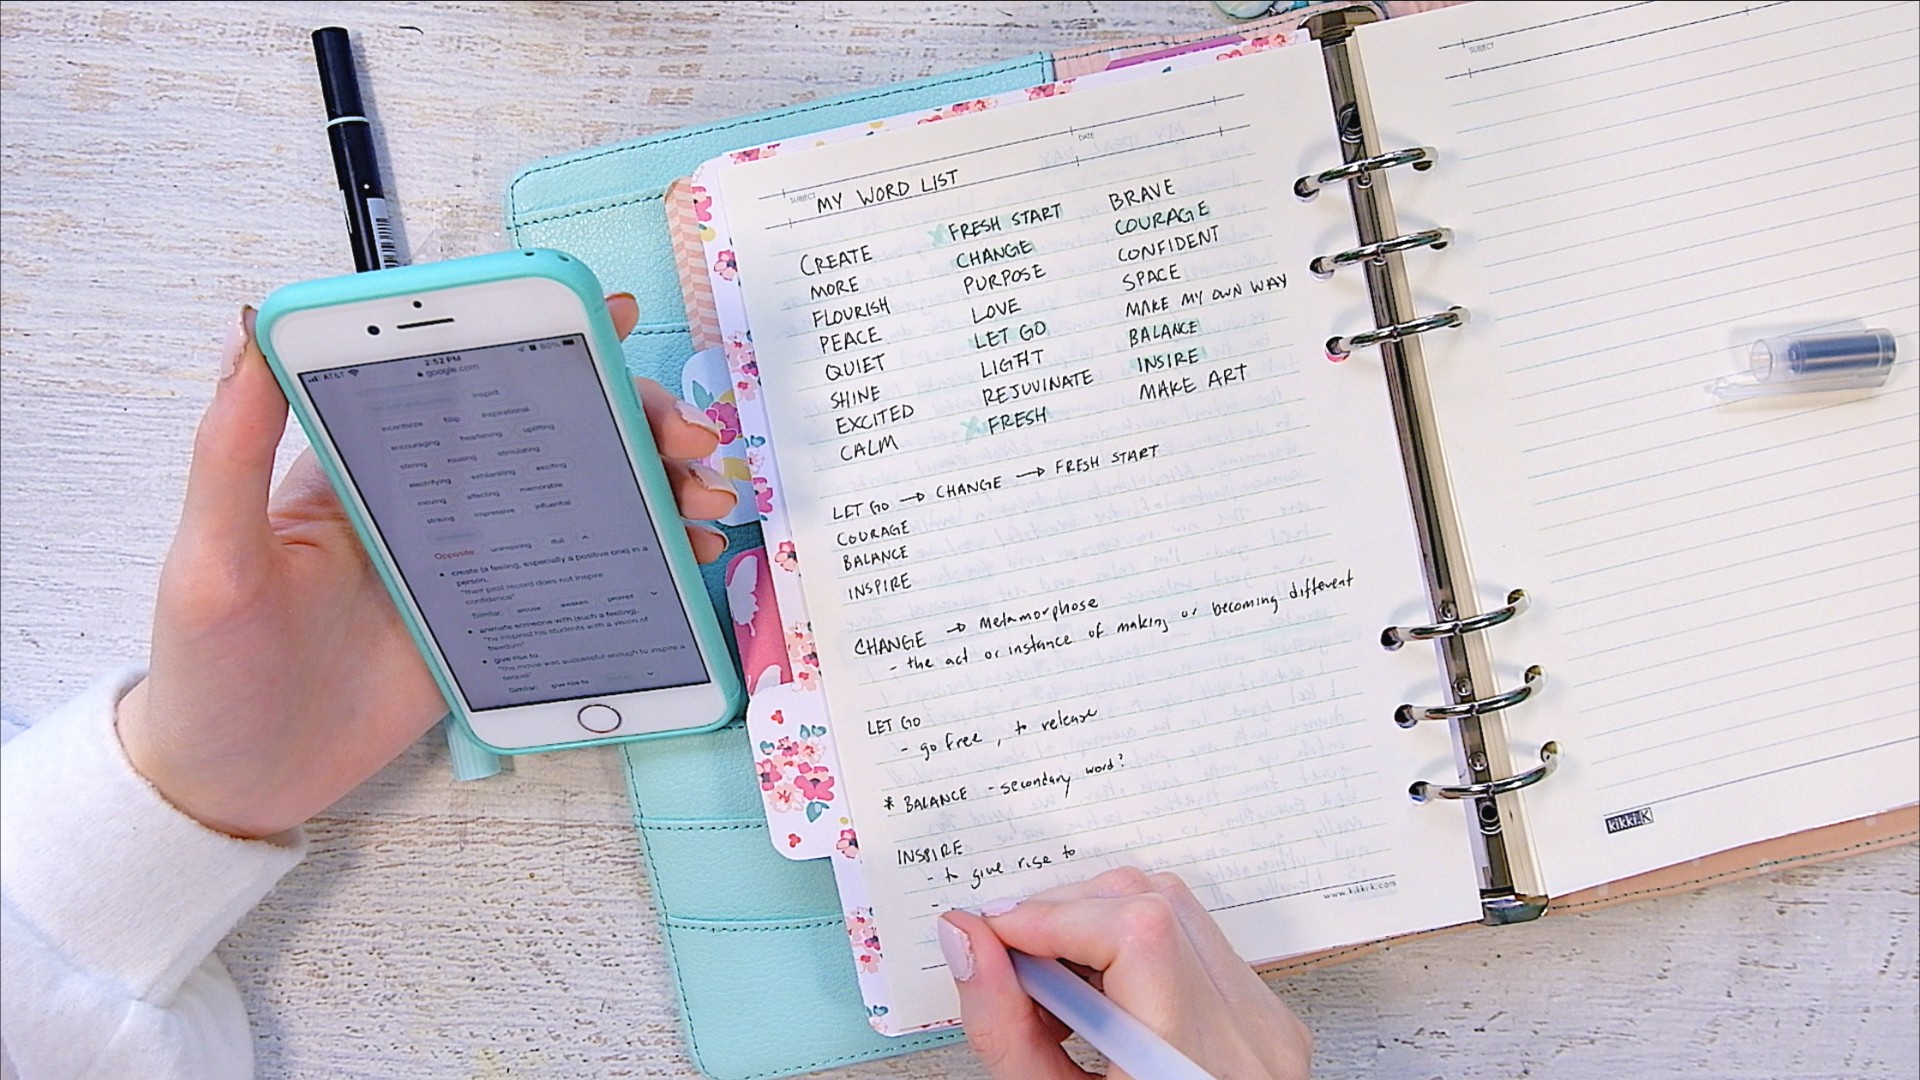 SUBJECT
DATE
MY WORD LIST
CREATE
MORE
FLOURISH
PEACE
QUIET
SHINE
EXCITED
CALM
FRESH START
CHANGE
PURPOSE
LOVE
LET GO
LIGHT
REJUVINATE
FRESH
BRAVE
COURAGE
CONFIDENT
SPACE
MAKE MY OWN WAY
BALANCE
INSIRE
MAKE ART
LET GO → CHANGE → FRESH START
COURAGE
BALANCE
INSPIRE
CHANGE → Metamorphose
- the act or instance of making or becoming different
LET GO
- go free, to release
* BALANCE - secondary word?
INSPIRE
- to give rise to
-
www.kikki-k.com
SUBJECT
kikki.K
AT&T 2:52 PM 80%
google.com
inspirit
incentivize fillip inspirational
encouraging heartening uplifting
stirring rousing stimulating
electrifying exhilarating exciting
moving affecting memorable
striking impressive influential
Opposite: uninspiring dull
• create (a feeling, especially a positive one) in a
person.
"their past record does not inspire
confidence"
Similar: arouse awaken prompt
• animate someone with (such a feeling).
"he inspired his students with a vision of
freedom"
• give rise to.
"the movie was successful enough to inspire a
sequel"
Similar: give rise to